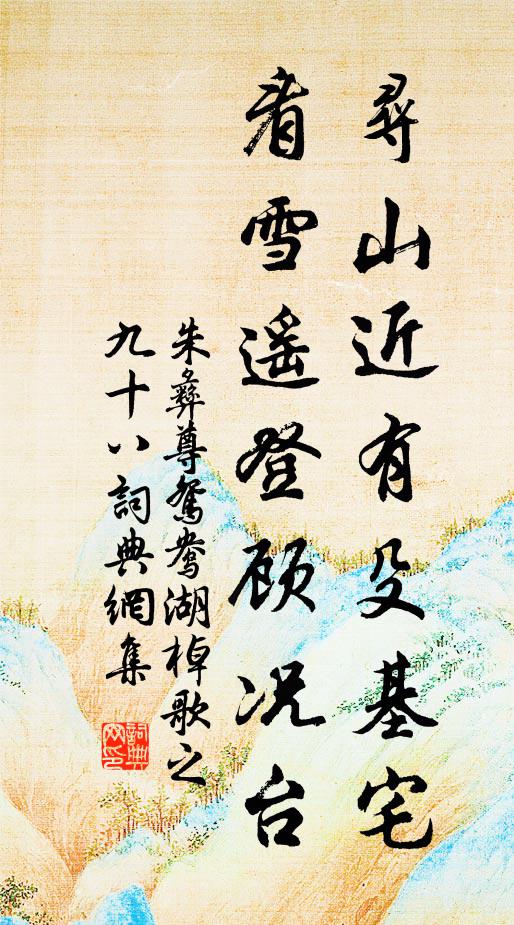 尋山近有殳基宅
看雪遥登顾况台
朱彝尊鴛鴦湖棹歌之
九十八詞典網集
詞典网印